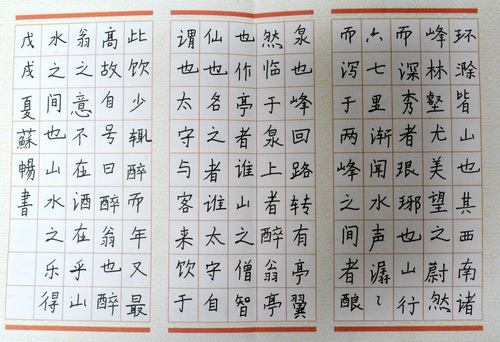 环滁皆山也其西南诸
峰林壑尤美望之蔚然
而深秀者琅琊也山行
六七里渐闻水声潺〻
而泻于两峰之间者酿
泉也峰回路转有亭翼
然临于泉上者醉翁亭
也作亭者谁山之僧智
仙也名之者谁太守自
谓也太守与客来饮于
此饮少辄醉而年又最
高故自号曰醉翁也醉
翁之意不在酒在乎山
水之间也山水之乐得
戊戌夏蘇暢書